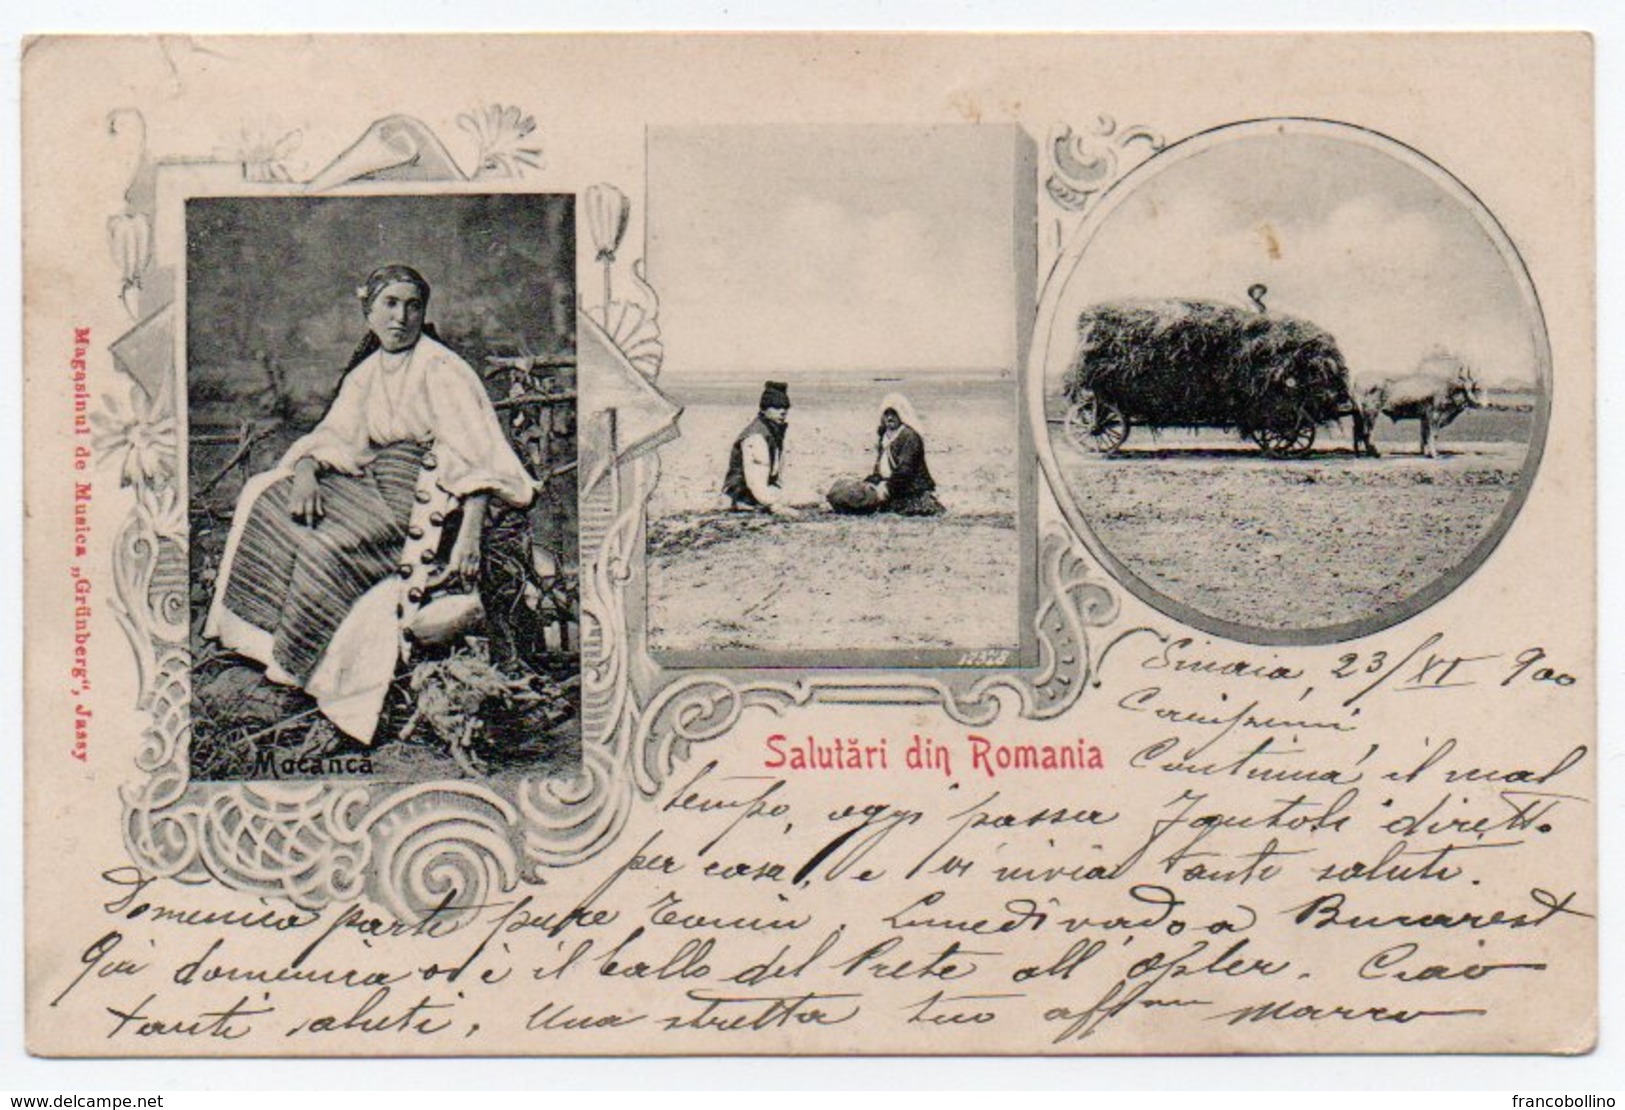 Magasinul de Musica „Grünberg“, Jassy
Mocancă
Salutări din Romania
Sinaia, 23/XI 900
Carissimi
Continua' il mal
tempo, oggi passa diretto
per casa, e vi invia tanti saluti.
Domenica parte pure Lunedì vado a Bucarest
Qui domenica vi è il ballo del Prete all' Opler. Ciao
tanti saluti, una stretta tuo affmo Marco
delcampe.net
francobollino